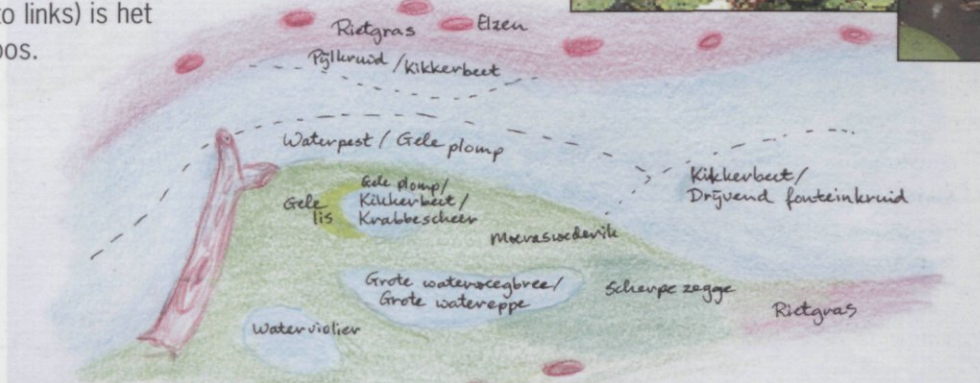 to links) is het
oos.
Rietgras
Elzen
Pijlkruid / Kikkerbeet
Waterpest / Gele plomp
Kikkerbeet/
Drijvend fonteinkruid
Gele
lis
Gele plomp/
Kikkerbeet/
Krabbescheer
Moeraswederik
Grote waterweegbree/
Grote watereppe
Scherpe zegge
Rietgras
Waterviolier